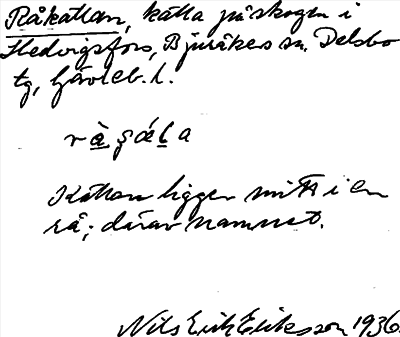 Råkällan, källa på skogen i
Hedvigsfors, Bjuråkers sn. Delsbo
tg, Gävleb. l.
Källan ligger mitt i en
rå; därav namnet.
Nils Erik Eriksson 1936.